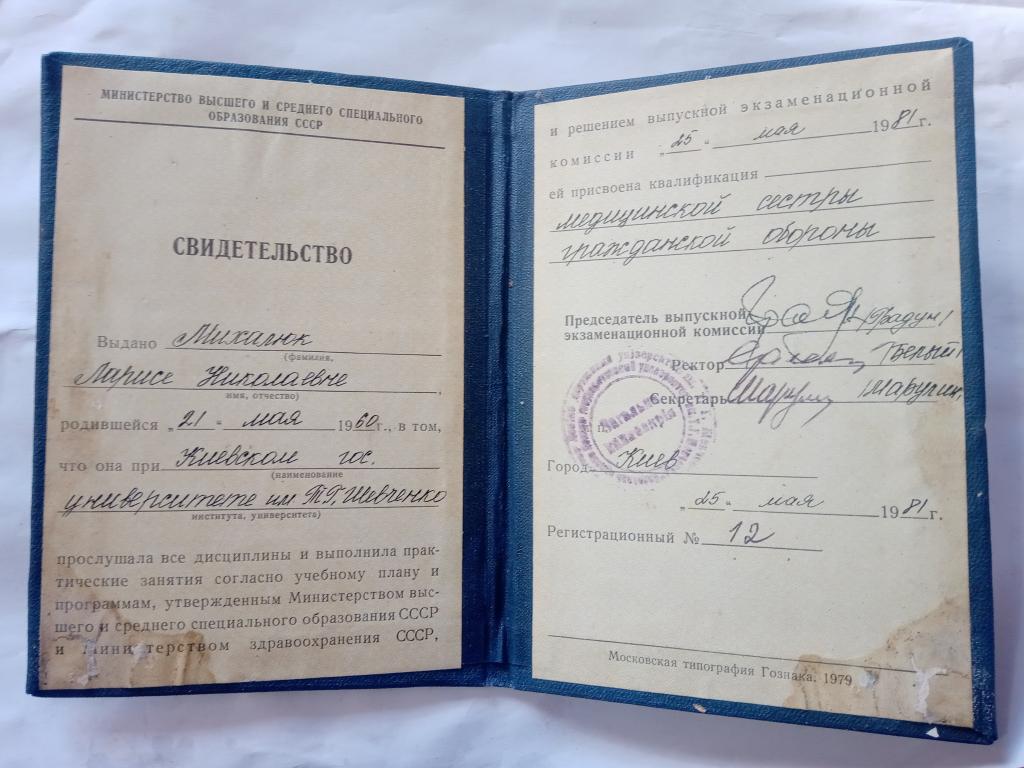 МИНИСТЕРСТВО ВЫСШЕГО И СРЕДНЕГО СПЕЦИАЛЬНОГО
ОБРАЗОВАНИЯ СССР
СВИДЕТЕЛЬСТВО
Выдано Михалюк
(фамилия,
Ларисе Николаевне
имя, отчество)
родившейся „21“ мая 1960 г., в том,
что она при Киевском гос.
(наименование
университете им Т.Г. Шевченко
института, университета)
прослушала все дисциплины и выполнила прак-
тические занятия согласно учебному плану и
программам, утвержденным Министерством выс-
шего и среднего специального образования СССР
и Министерством здравоохранения СССР,
и решением выпускной экзаменационной
комиссии „25“ мая 1981 г.
ей присвоена квалификация
медицинской сестры
гражданской обороны
Председатель выпускной
экзаменационной комиссии (Фадун)
Ректор (Белый)
Секретарь
Город Киев
„25“ мая 1981 г.
Регистрационный № 12
Московская типография Гознака. 1979